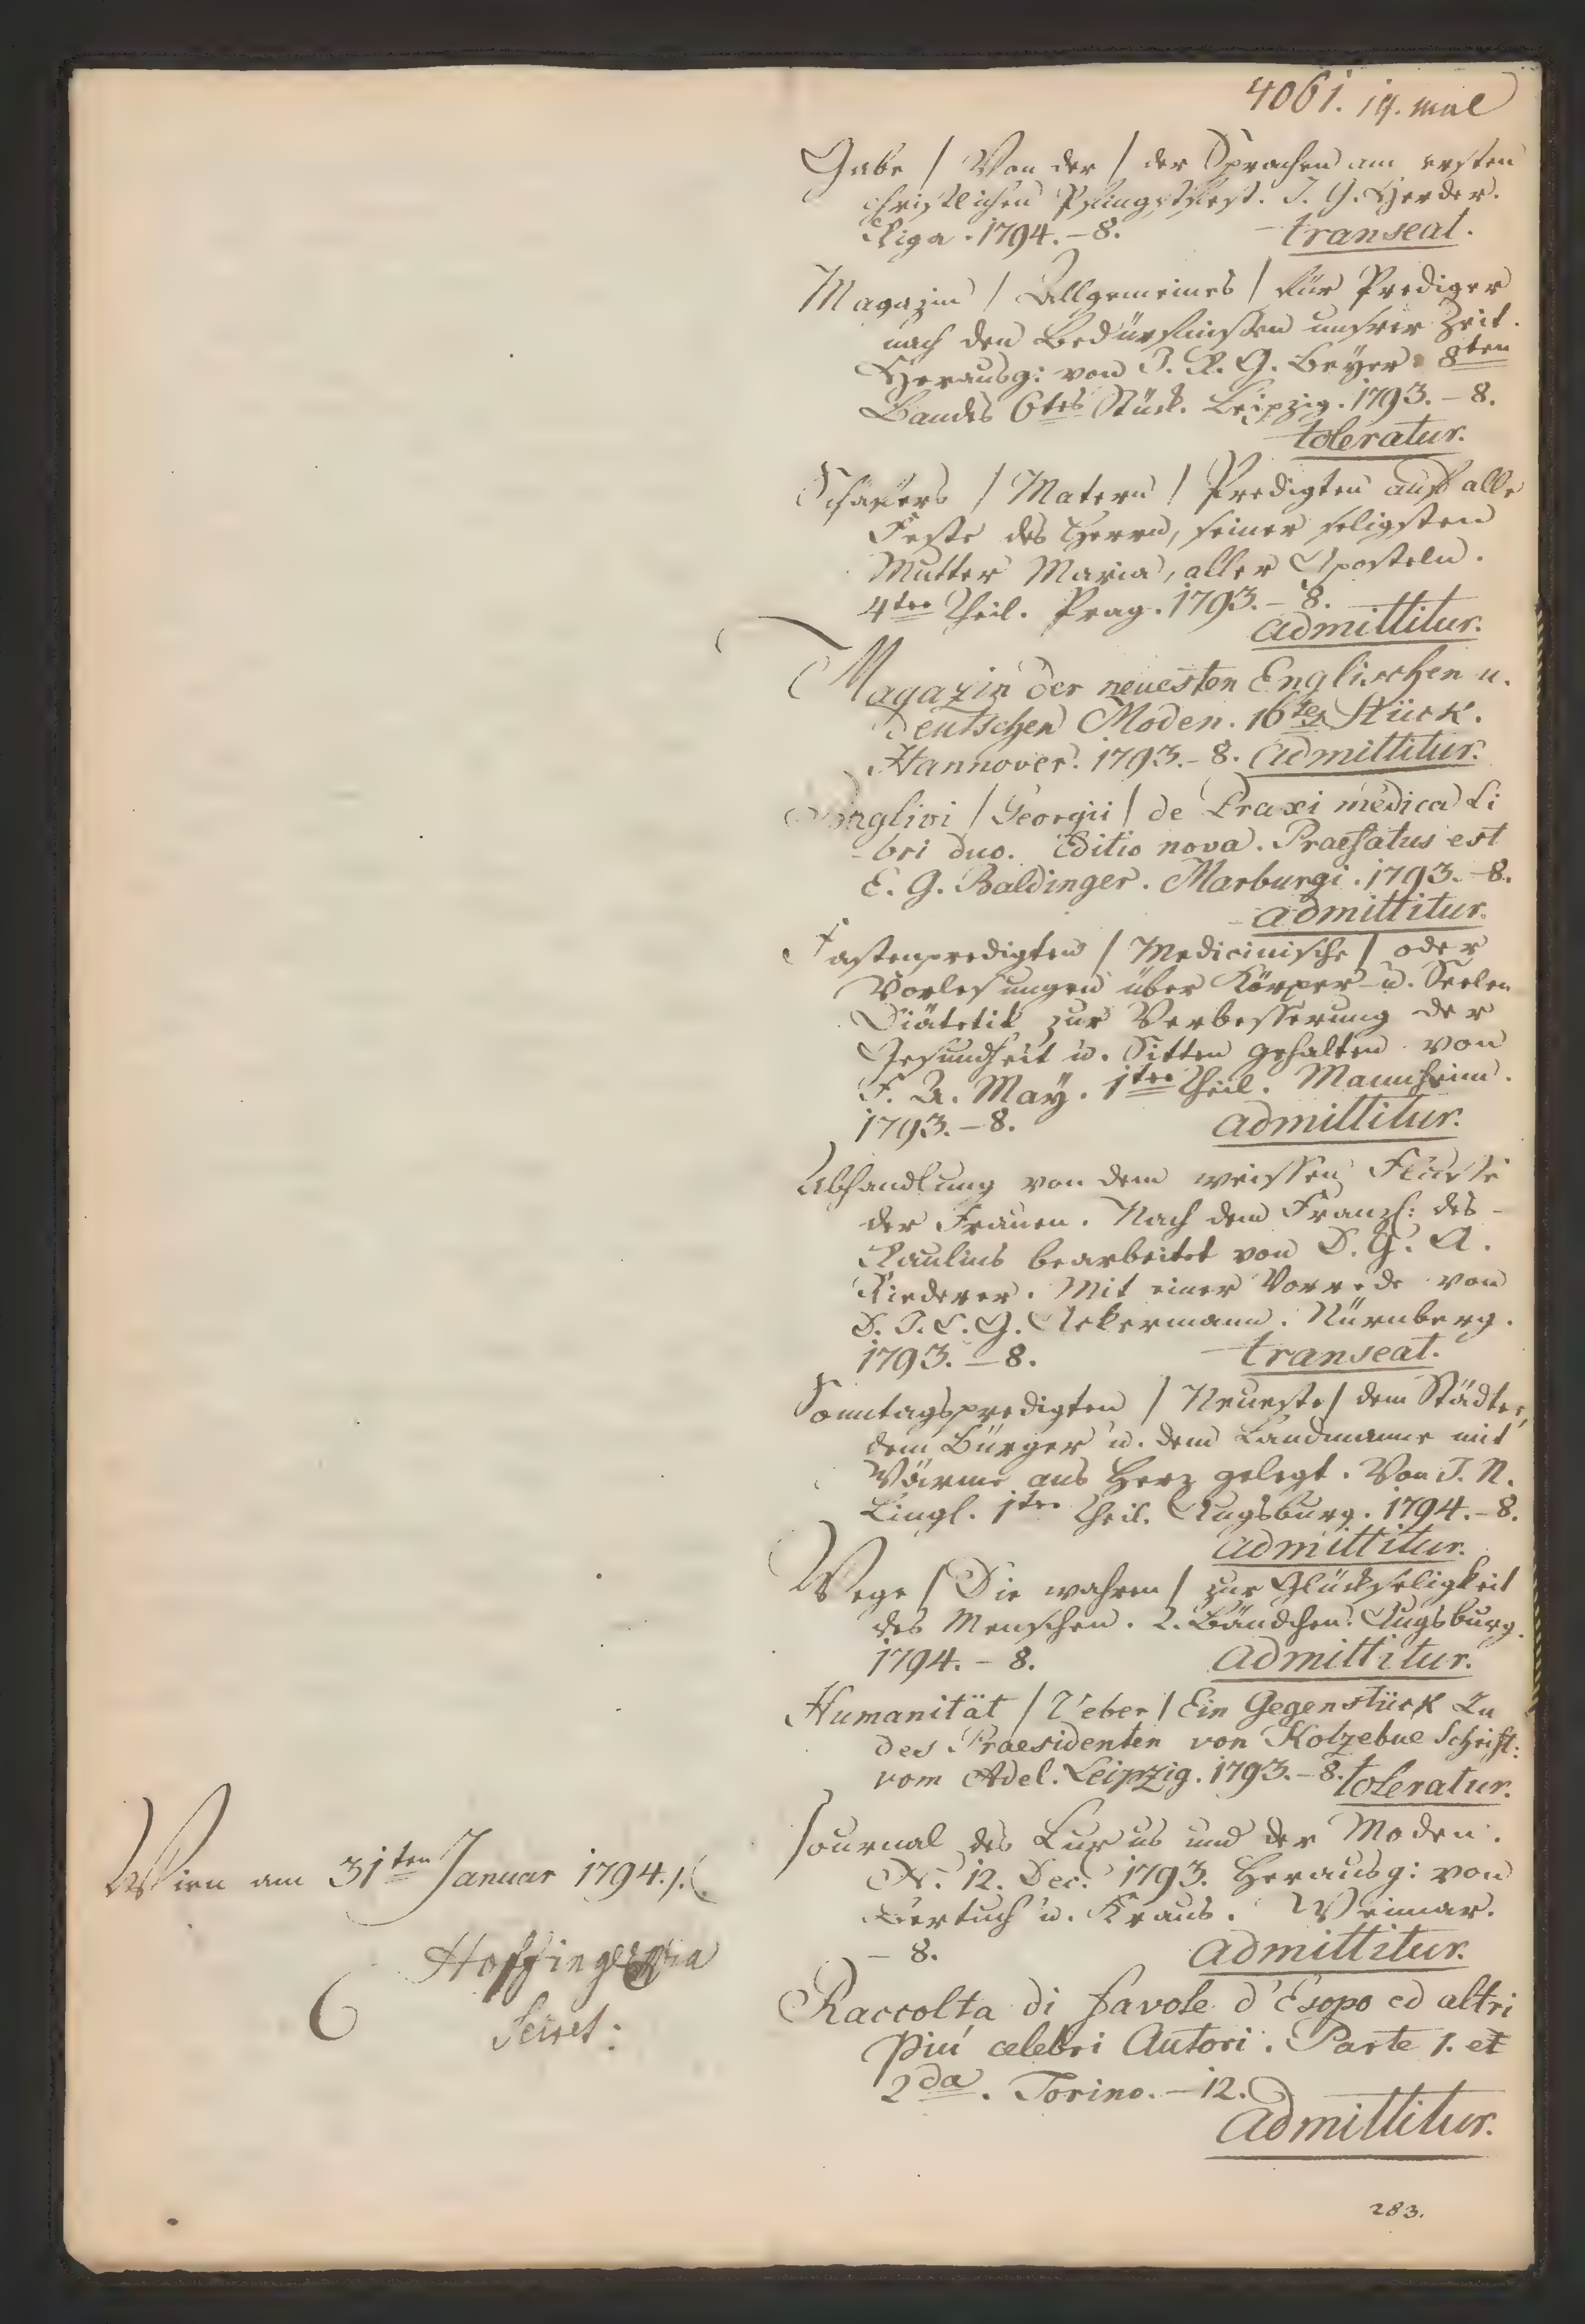 4061. 19. mal
Gabe / Von der / der Sprachen am ersten
christlichen Pfingstfest. J. G. Herder.
Riga. 1794. – 8. transeat.
Magazin / Allgemeines / für Prediger
nach den Bedürfnissen unsrer Zeit.
Herausg: von J. R. G. Beyer. 8ten
Bandes 6tes Stück. Leipzig. 1793. – 8.
toleratur.
/ Matern / Predigten auf alle
Feste des Herrn, seiner seligsten
Mutter Maria, aller Aposteln.
4ter Theil. Prag. 1793. – 8.
admittitur.
Magazin der neuesten Englischen u.
deutschen Moden. 16tes Stück.
Hannover. 1793. – 8. admittitur.
Baglivi / Georgii / de Praxi medica Li
-bri duo. Editio nova. Praefatus est
E. G. Baldinger. Marburgi. 1793. – 8.
admittitur.
Fastenpredigten / Medicinische / oder
Vorlesungen über Körper- u. Seelen
Diätetik zur Verbesserung der
Gesundheit u. Sitten gehalten von
F. A. May. 1ter Theil. Mannheim.
1793. – 8. admittitur.
Abhandlung von dem weissen Flusse
der Frauen. Nach dem Franzs: des
Raulins bearbeitet von D. G. A.
Riederer. Mit einer Vorrede von
D. J. C. G. Ackermann. Nürnberg.
1793. – 8. transeat.
Sonntagspredigten / Neueste / dem Städter,
dem Bürger u. dem Landmanne mit
Wärme ans Herz gelegt. Von J. N.
Lingl. 1ter Theil. Augsburg. 1794. – 8.
admittitur.
Wege / Die wahren / zur Glückseligkeit
des Menschen. 2. Bändchen. Augsburg.
1794. – 8. admittitur.
Humanität / Ueber / Ein Gegenstück zu
des Praesidenten von Kotzebue Schrift:
vom Adel. Leipzig. 1793. – 8. toleratur.
Journal des Luxus und der Moden.
N. 12. Dec. 1793. Herausg: von
Bertuch u. Kraus. Weimar.
– 8. admittitur.
Raccolta di favole d'Esopo ed altri
più celebri Autori. Parte 1. et
2da. Torino. – 12.
admittitur.
Wien am 31ten Januar 1794.
Secret:
283.